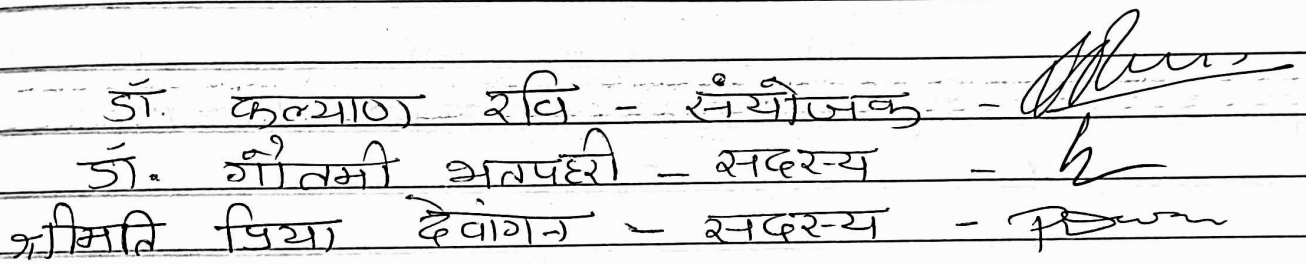 डॉ. कल्याण रवि - संयोजक -
डॉ. गौतमी भतपहरी - सदस्य -
श्रीमति प्रिया देवांगन - सदस्य -